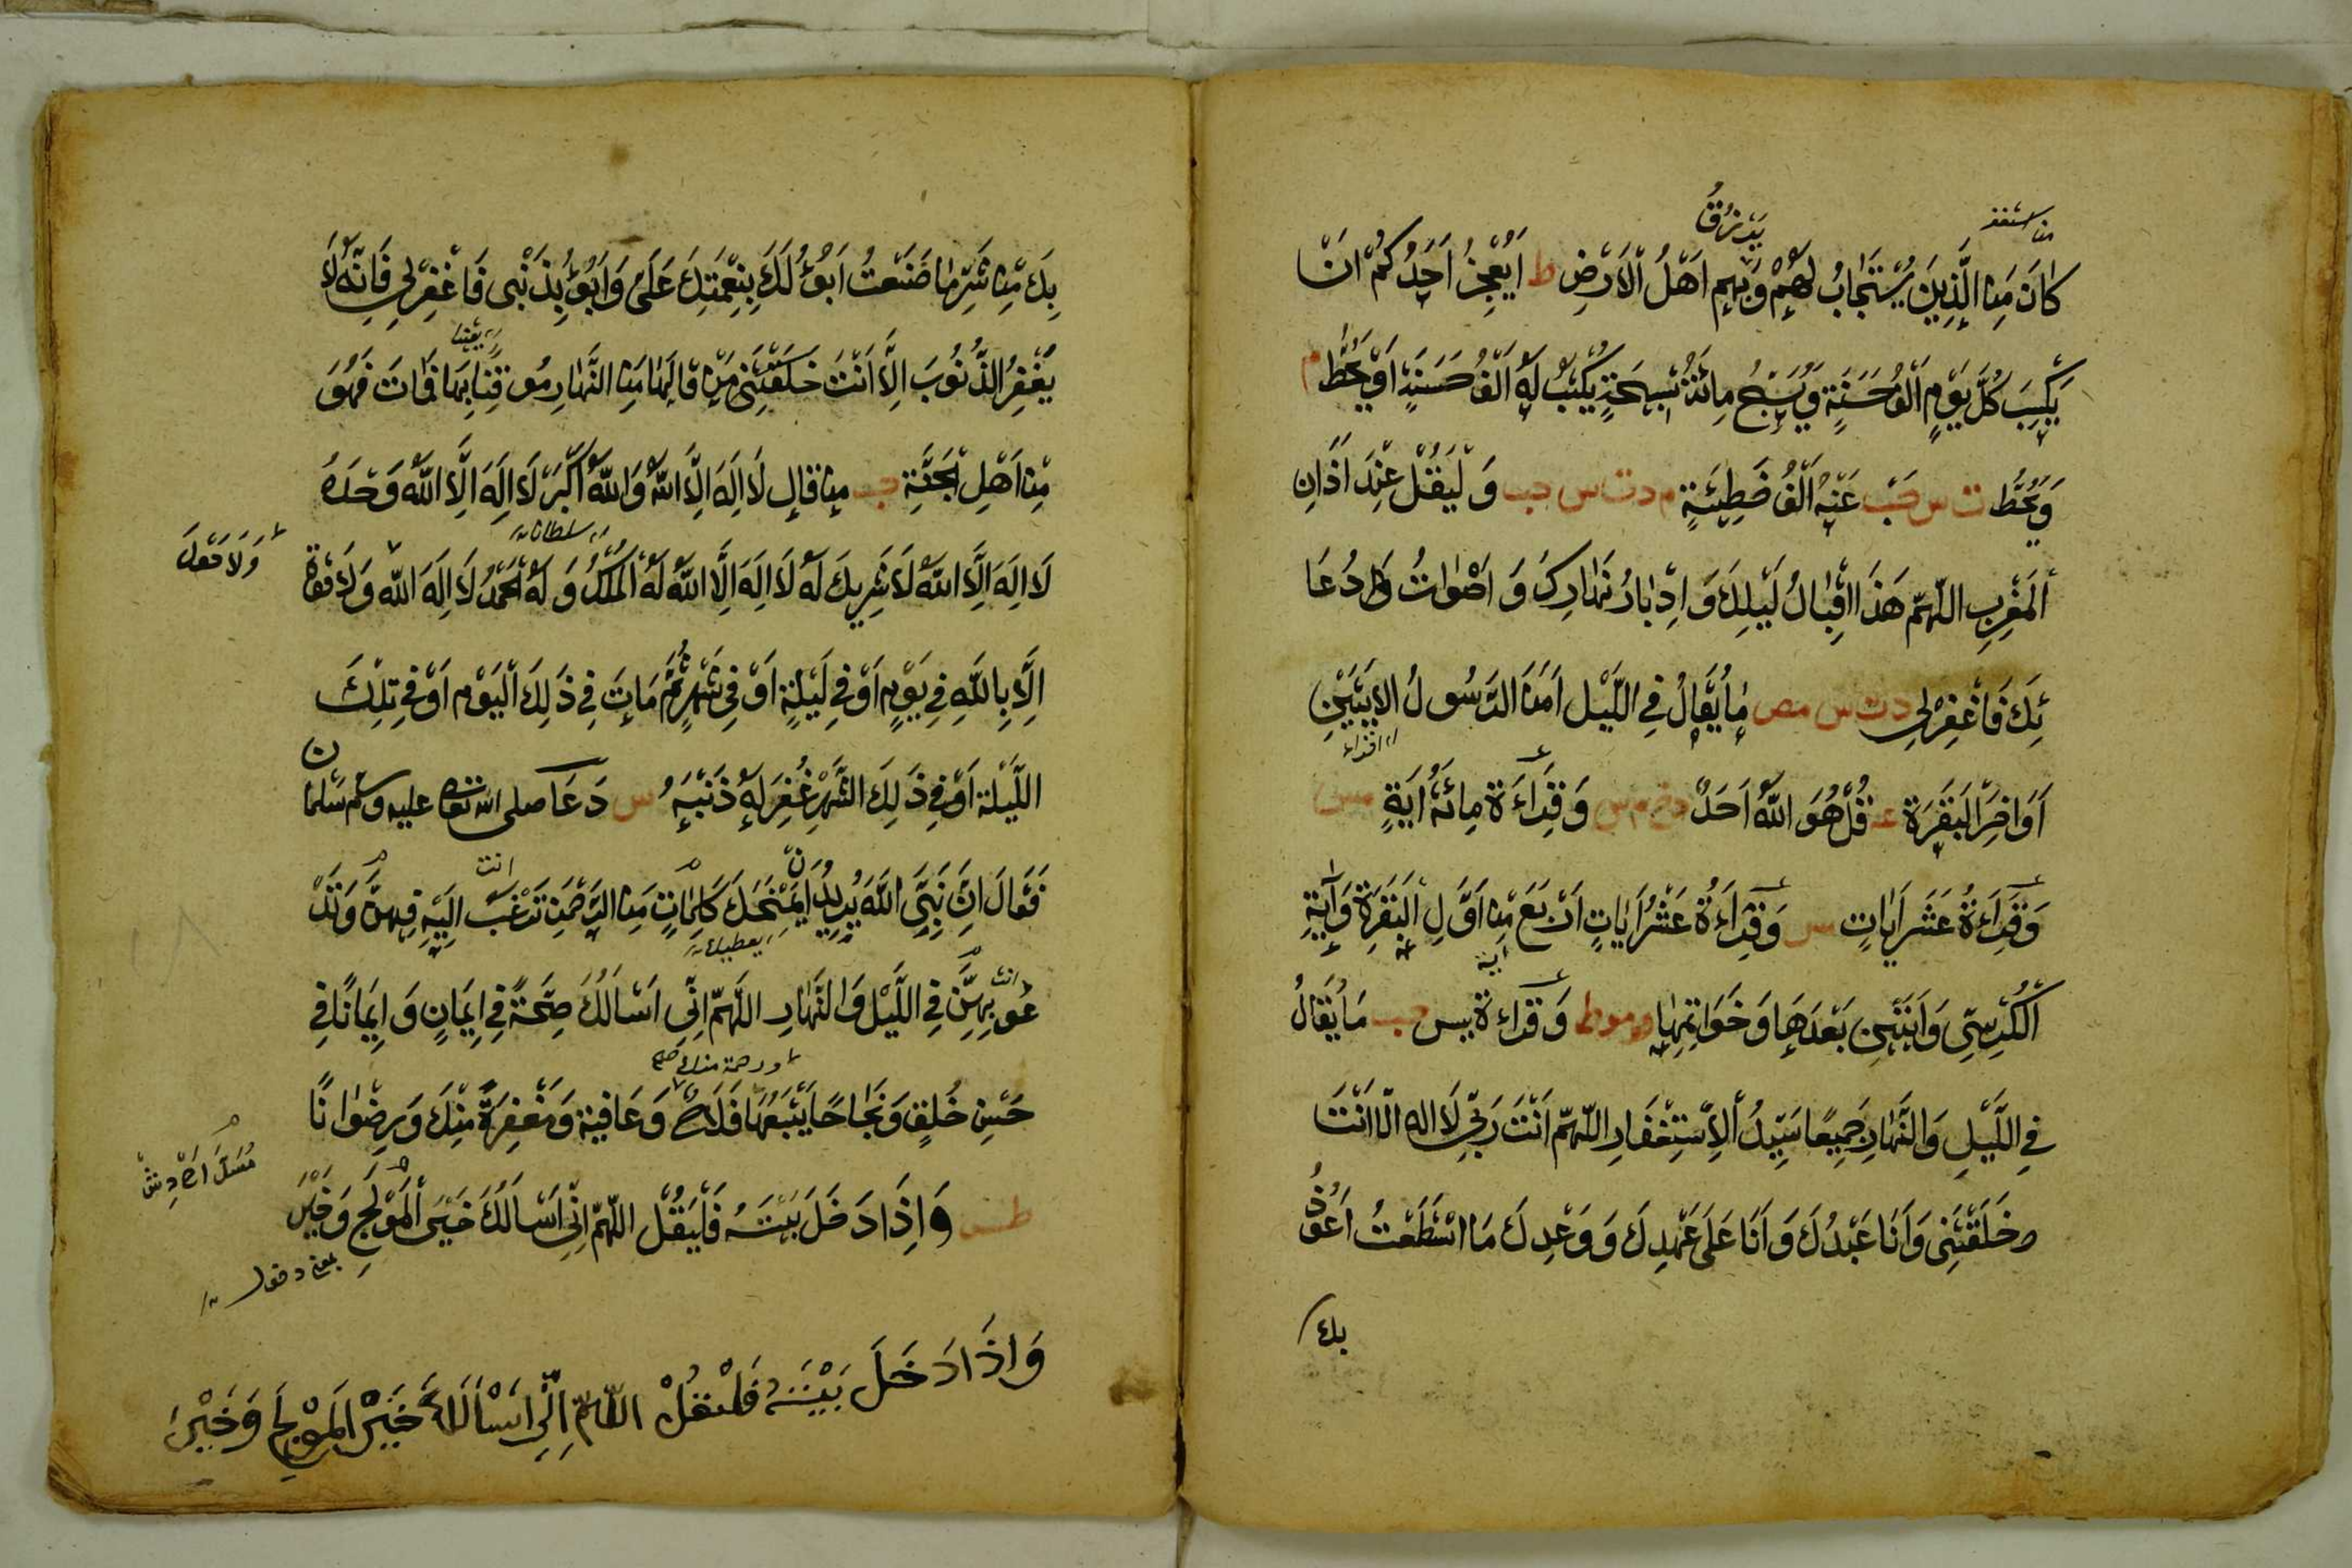 من استغفر
يُرْزَقُ
كَانَ مِنَ الَّذِينَ يُسْتَجَابُ لَهُمْ وَبِهِمْ اَهْلُ الْاَرْضِ ط اَيَعْجِزُ اَحَدُكُمْ اَنْ
يَكْسِبَ كُلَّ يَوْمٍ اَلْفَ حَسَنَةٍ يُسَبِّحُ مِائَةَ تَسْبِيحَةٍ يُكْتَبُ لَهُ اَلْفُ حَسَنَةٍ اَوْ يُحَطُّ م
وَيُحَطُّ ت س حب عَنْهُ اَلْفُ خَطِيْئَةٍ م د ت س حب وَلْيَقُلْ عِنْدَ اَذَانِ
الْمَغْرِبِ اللّٰهُمَّ هَذَا اِقْبَالُ لَيْلِكَ وَاِدْبَارُ نَهَارِكَ وَاَصْوَاتُ دُعَا
ئِكَ فَاغْفِرْلِى د ت س مص مَا يُقَالُ فِى اللَّيْلِ اٰمَنَ الرَّسُولُ الاٰيَتَيْنِ
اَوَاخِرَ الْبَقَرَةِ ع قُلْ هُوَ اللّٰهُ اَحَدٌ خ م س وَقِرَاءَةُ مِائَةِ اٰيَةٍ مس
وَقِرَاءَةُ عَشْرَ اٰيَاتٍ مس وَقِرَاءَةُ عَشْرِ اٰيَاتٍ اَرْبَعٍ مِنْ اَوَّلِ الْبَقَرَةِ وَاٰيَةِ
اية
الْكُرْسِىِّ وَاٰيَتَيْنِ بَعْدَهَا وَخَوَاتِمِهَا موط وَقِرَاءَةُ يس حب مَا يُقَالُ
فِى اللَّيْلِ وَالنَّهَارِ جَمِيعًا سَيِّدُ الْاِسْتِغْفَارِ اللّٰهُمَّ اَنْتَ رَبِّى لَا اله الّا اَنْتَ
خَلَقْتَنِى وَاَنَا عَبْدُكَ وَاَنَا عَلَى عَهْدِكَ وَوَعْدِكَ مَا اسْتَطَعْتُ اَعُوْذُ
بك
بِكَ مِنْ شَرِّ مَا صَنَعْتُ اَبُوْءُ لَكَ بِنِعْمَتِكَ عَلَىَّ وَاَبُوْءُ بِذَنْبِى فَاغْفِرْلِى فَاِنَّهُ لَا
يَغْفِرُ الذُّنُوبَ اِلَّا اَنْتَ خَلَقْتَنِى مَنْ قَالَهَا مِنَ النَّهَارِ مُوقِنًا بِهَا فَمَاتَ فَهُوَ
مِنْ اَهْلِ الْجَنَّةِ حب مَنْ قَالَ لَا اِلَهَ اِلَّا اللّٰهُ وَاللّٰهُ اَكْبَرُ لَا اِلَهَ اِلَّا اللّٰهُ وَحْدَهُ
لَا اِلَهَ اِلَّا اللّٰهُ لَا شَرِيكَ لَهُ لَا اِلَهَ اِلَّا اللّٰهُ لَهُ الْمُلْكُ وَلَهُ الْحَمْدُ لَا اِلَهَ اللّٰه وَلَا قُوَّةَ
وَلَا حَوْلَ
اِلَّا بِاللّٰهِ فِى يَوْمٍ اَوْ فِى لَيْلَةٍ اَوْ فِى شَهْرٍ ثُمَّ مَاتَ فِى ذَلِكَ الْيَوْمِ اَوْ فِى تِلْكَ
اللَّيْلَةِ اَوْ فِى ذَلِكَ الشَّهْرِ غُفِرَ لَهُ ذَنْبُهُ س دَعَا صلى الله تعالى عليه وسلم سَلْمَانَ
فَقَالَ اِنَّ نَبِىَّ اللّٰهِ يُرِيدُ اَنْ يَمْنَحَكَ كَلِمَاتٍ مِنَ الرَّحْمٰنِ تَرْغَبُ اِلَيْهِ فِيهِنَّ وَتَدْ
عُو بِهِنَّ فِى اللَّيْلِ وَالنَّهَارِ اللّٰهُمَّ اِنِّى اَسْأَلُكَ صِحَّةً فِى اِيْمَانٍ وَاِيْمَانًا فِى
ورحمة منك
حُسْنِ خُلُقٍ وَنَجَاحًا يَتْبَعُهَا فَلَاحٌ وَعَافِيَةً وَمَغْفِرَةً مِنْكَ وَرِضْوَانًا
طس وَاِذَا دَخَلَ بَيْتَهُ فَلْيَقُلِ اللّٰهُمَّ اِنِّى اَسْأَلُكَ خَيْرَ الْمَوْلِجِ وَخَيْرَ
وَاِذَا دَخَلَ بَيْتَهُ فَلْيَقُلْ اللّٰهُمَّ اِنِّى اَسْأَلُكَ خَيْرَ الْمَوْلِجِ وَخَيْرَ